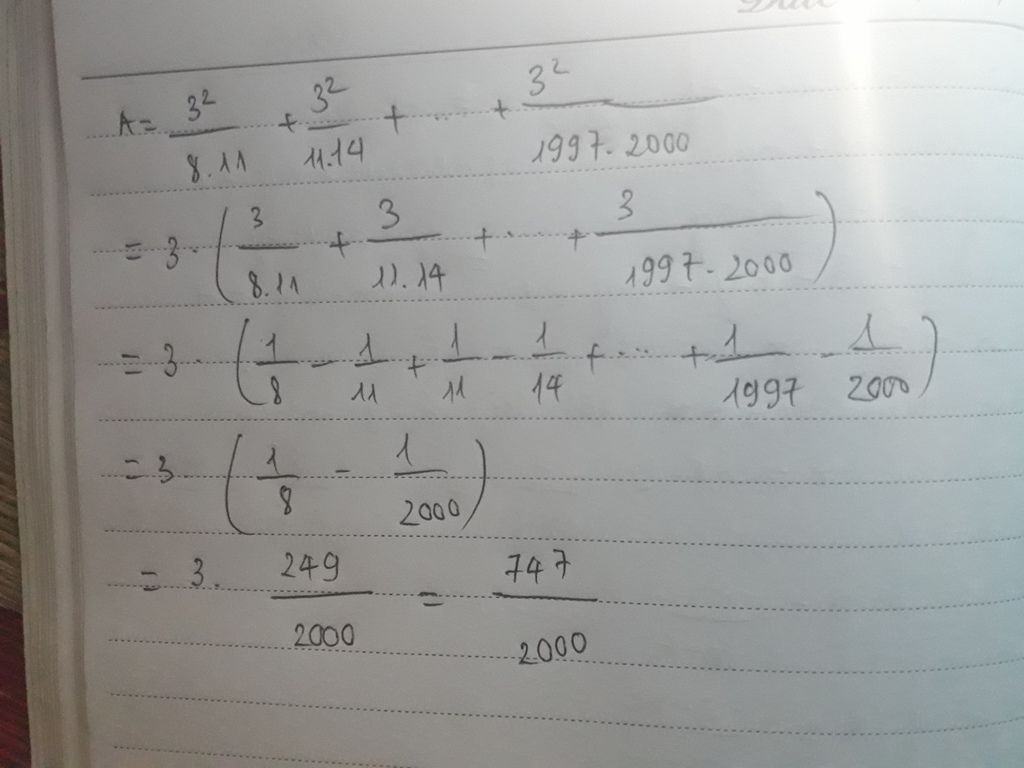 A = 3²/8.11 + 3²/11.14 + ... + 3²/1997.2000
= 3 . (3/8.11 + 3/11.14 + ... + 3/1997.2000)
= 3 . (1/8 - 1/11 + 1/11 - 1/14 + ... + 1/1997 - 1/2000)
= 3 . (1/8 - 1/2000)
= 3 . 249/2000 = 747/2000